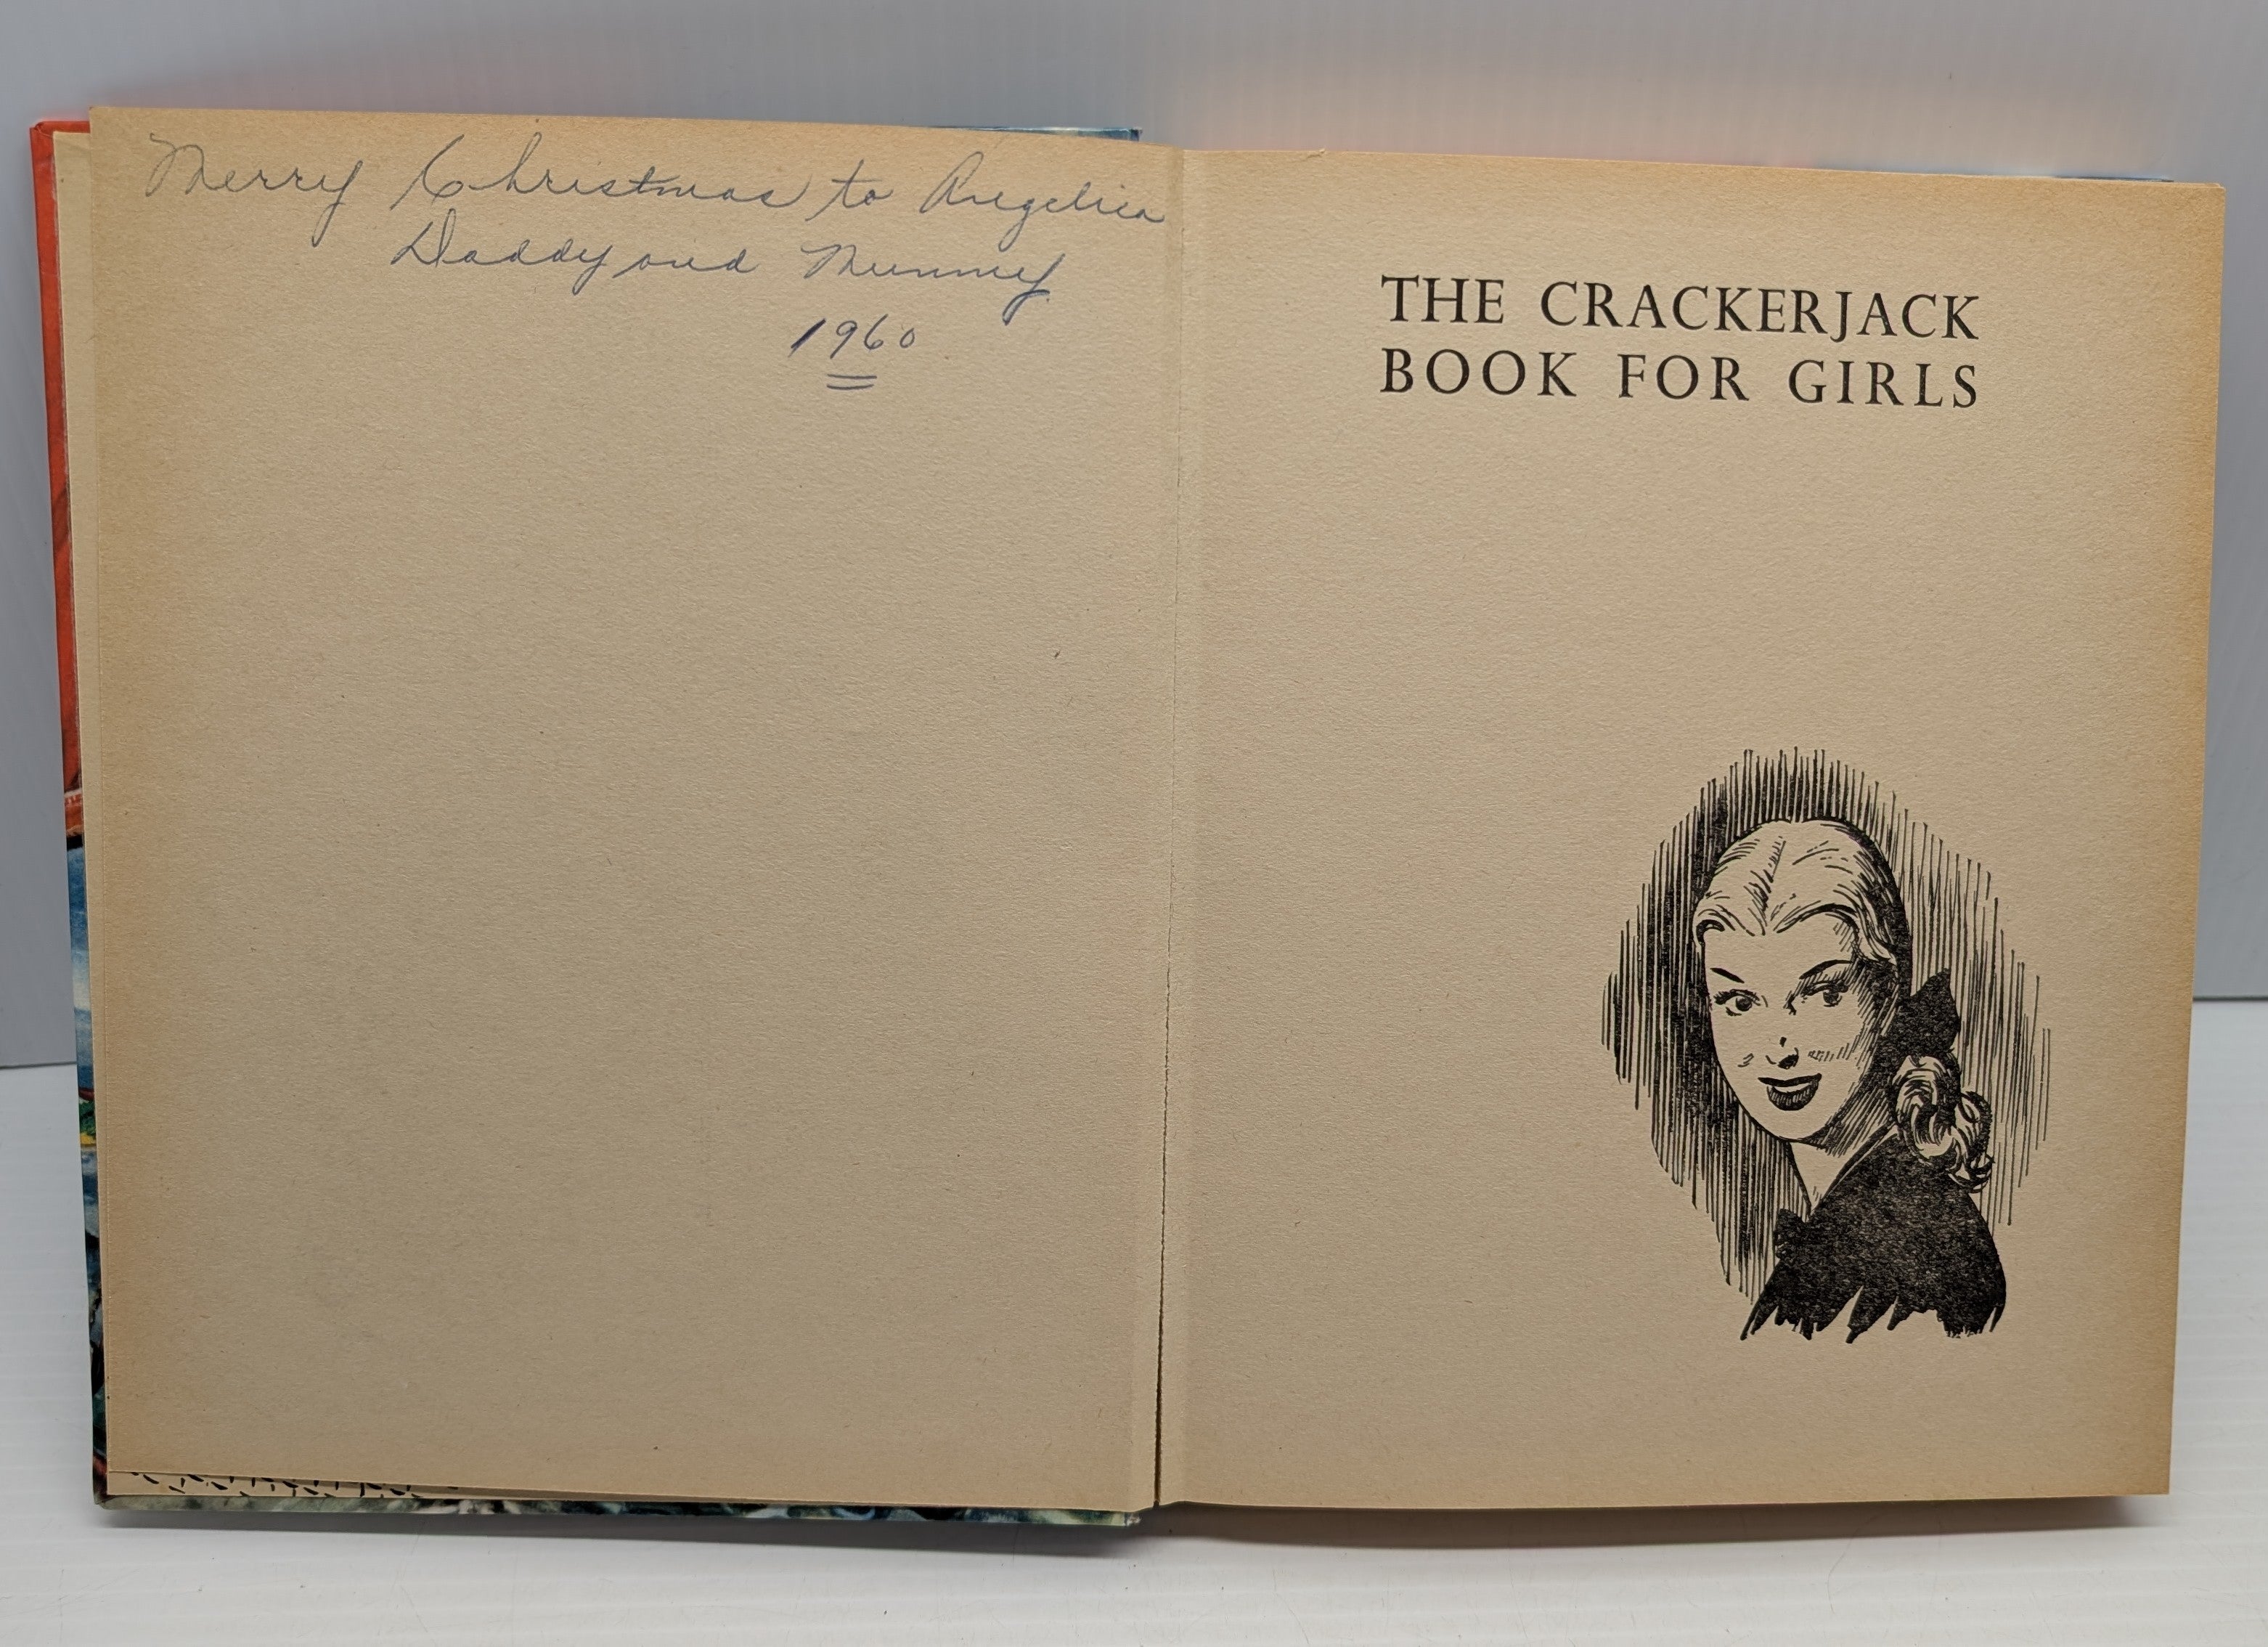 Merry Christmas to Angelica
Daddy and Mummy
1960
THE CRACKERJACK
BOOK FOR GIRLS